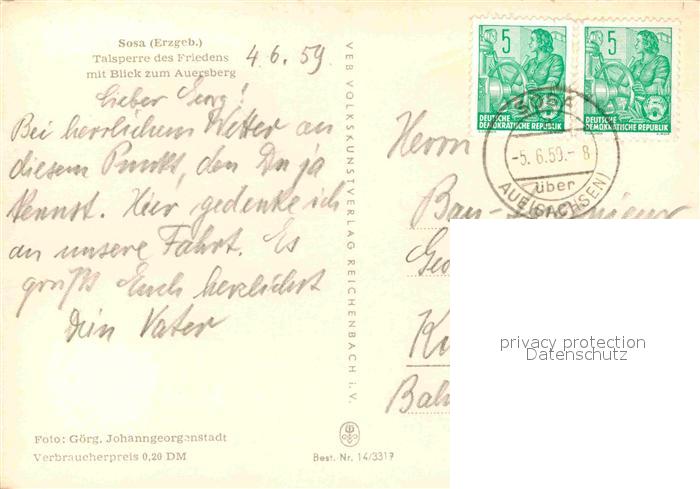 Sosa (Erzgeb.)
Talsperre des Friedens
mit Blick zum Auersberg
4.6.59.
Lieber Georg!
Bei herrlichem Wetter an
diesem Punkt, den Du ja
kennst. Hier gedenke ich
an unsere Fahrt. Es
grüßt Euch herzlichst
Dein Vater
Foto: Görg, Johanngeorgenstadt
Verbraucherpreis 0,20 DM
VEB VOLKSKUNSTVERLAG REICHENBACH i. V.
Best. Nr. 14/3317
5
DEUTSCHE
DEMOKRATISCHE REPUBLIK
5
5
DEUTSCHE
DEMOKRATISCHE REPUBLIK
5
SOSA
-5.6.59.-8
über
AUE (SACHSEN)
Herrn
Bau-Ingenieur
Geo
Ku
Bah
privacy protection
Datenschutz